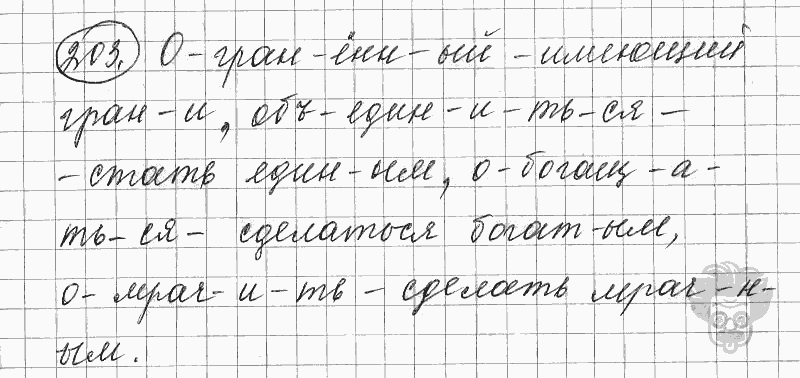 203. О-гран-ённ-ый - имеющий
гран-и, объ-един-и-ть-ся -
- стать един-ым, о-богащ-а-
ть-ся - сделаться богат-ым,
о-мрач-и-ть - сделать мрач-н-
ым.